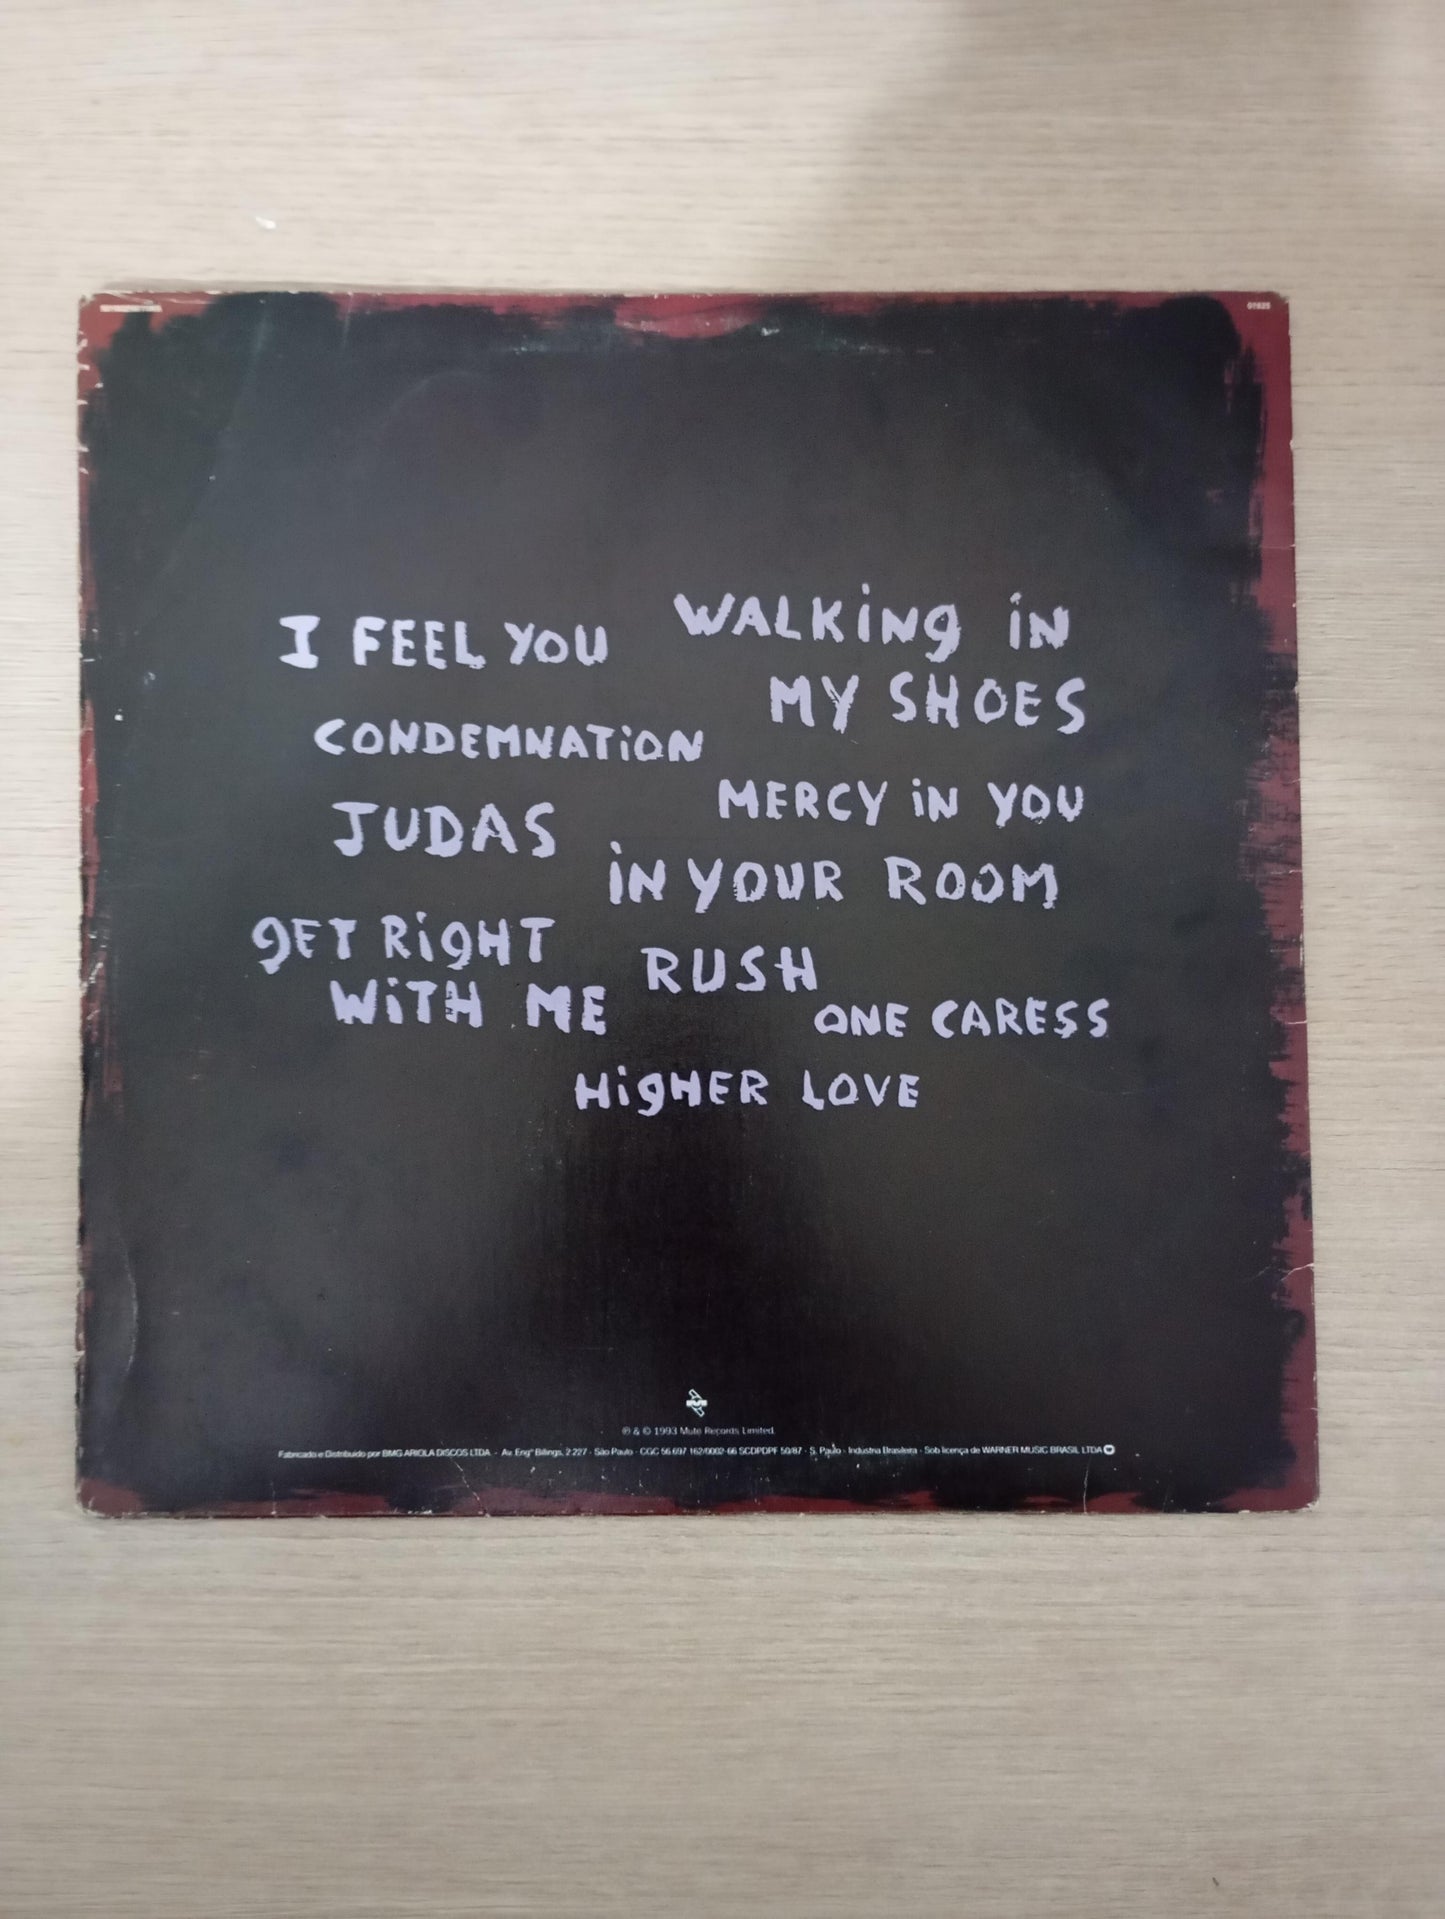 I FEEL YOU
WALKiNg iN
MY SHOES
CONDEMNATiON
MERCY iN YOU
JUDAS
iN YOUR ROOM
gET RigHT
WiTH ME
RUSH
ONE CARESS
HigHER LOVE
℗ & © 1993 Mute Records Limited.
Fabricado e Distribuido por BMG ARIOLA DISCOS LTDA. - Av. Engº Billings, 2.227 - São Paulo - CGC 56.697.162/0002-66 SCDPDPF 50/87 - S. Paulo - Indústria Brasileira - Sob licença de WARNER MUSIC BRASIL LTDA